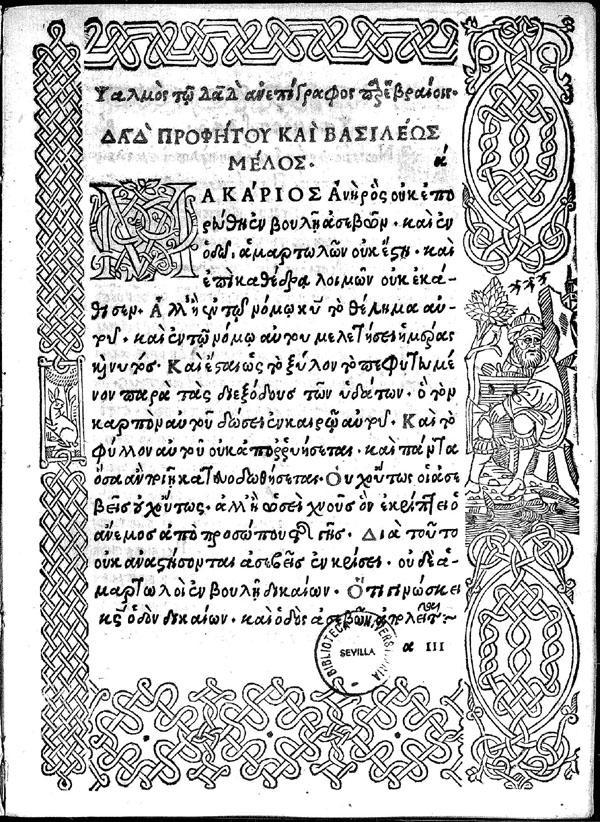 Ψαλμὸς τῷ Δαδ ἀνεπίγραφος παρ' ἑβραίοις.
ΔΑΔ ΠΡΟΦΗΤΟΥ ΚΑῚ ΒΑΣΙΛΈΩΣ
ΜΈΛΟΣ. ά
ΜΑΚΆΡΙΟΣ Ἀνὴρ ὃς οὐκ ἐπο
ρεύθη ἐν βουλῇ ἀσεβῶν. καὶ ἐν
ὁδῷ ἁμαρτωλῶν οὐκ ἔστη. καὶ
ἐπὶ καθέδρᾳ λοιμῶν οὐκ ἐκά-
θισεν. Ἀλλ' ἢ ἐν τῷ νόμῳ κυ τὸ θέλημα αὐ-
τοῦ. καὶ ἐν τῷ νόμῳ αὐτοῦ μελετήσει ἡμέρας
καὶ νυκτός. Καὶ ἔσται ὡς τὸ ξύλον τὸ πεφυτευμέ
νον παρὰ τὰς διεξόδους τῶν ὑδάτων. ὃ τὸν
καρπὸν αὐτοῦ δώσει ἐν καιρῷ αὐτοῦ. Καὶ τὸ
φύλλον αὐτοῦ οὐκ ἀπορρυήσεται. καὶ πάντα
ὅσα ἂν ποιῇ κατευοδωθήσεται. Οὐχ οὕτως οἱ ἀσε
βεῖς οὐχ οὕτως. ἀλλ' ἢ ὡσεὶ χνοῦς ὃν ἐκρίπτει ὁ
ἄνεμος ἀπὸ προσώπου τῆς γῆς. Διὰ τοῦτο
οὐκ ἀναστήσονται ἀσεβεῖς ἐν κρίσει. οὐδὲ ἁ-
μαρτωλοὶ ἐν βουλῇ δικαίων. Ὅτι γινώσκει
κς ὁδὸν δικαίων. καὶ ὁδὸς ἀσεβῶν ἀπολεῖται
α III
BIBLIOTECA UNIVERSITARIA
SEVILLA